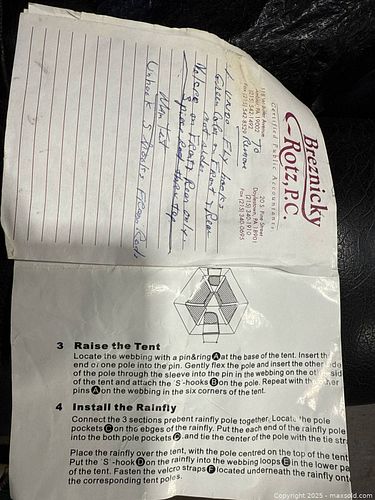 Breznicky
Rotz, P.C.
Certified Public Accountants
Ambler, PA 19002
20 S. Pine Street
Doylestown, PA 18901
(215) 340-1910
Fax (215) 340-0695
To
Remove
1 undo Fly hooks
Green color in Front & Rear
not sides
Velcro on Front & Rear only
Unhook S hooks From Rods
3 Raise the Tent
Locate the webbing with a pin&ring A at the base of the tent. Insert the
end of one pole into the pin. Gently flex the pole and insert the other
of the pole through the sleeve into the pin in the webbing on the
of the tent and attach the 'S'-hooks B on the pole. Repeat with the
pins A on the webbing in the six corners of the tent.
4 Install the Rainfly
Connect the 3 sections prebent rainfly pole together. Locate the pole
pockets C on the edges of the rainfly. Put the each end of the rainfly pole
into the both pole pockets C, and tie the center of pole with the tie
Place the rainfly over the tent, with the pole centred on the top of the tent
Put the 'S'-hook D on the rainfly into the webbing loops E in the lower
of the tent. Fasten the velcro straps F located underneath the rainfly
the corresponding tent poles.
Copyright 2025 - maxsold.com